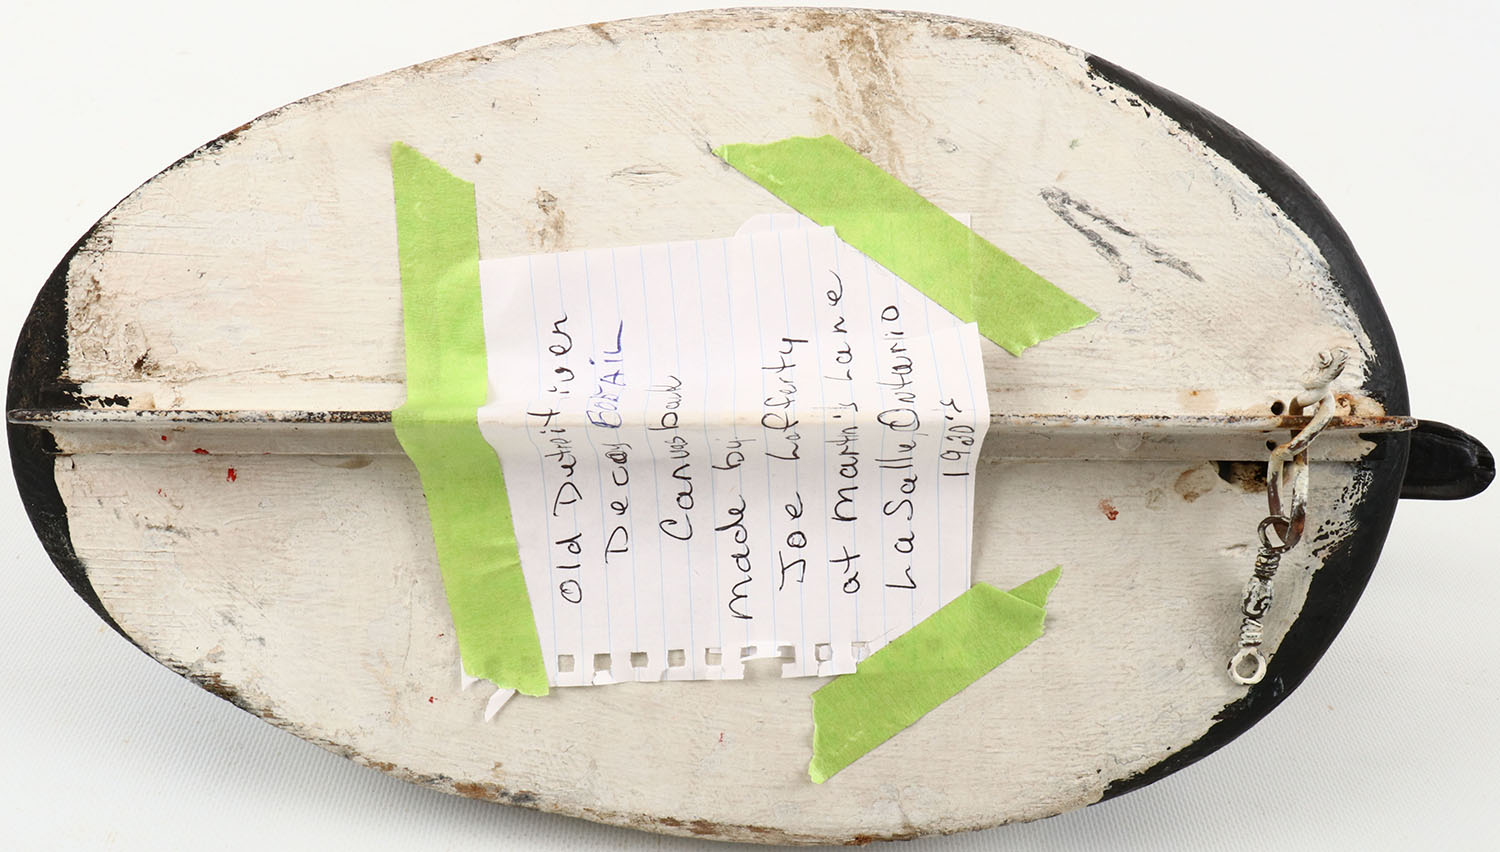 Old Detroit iver
Decoy
Canvsback
made by
Joe Lafferty
at Martin's Lane
LaSalle, Ontario
1920's